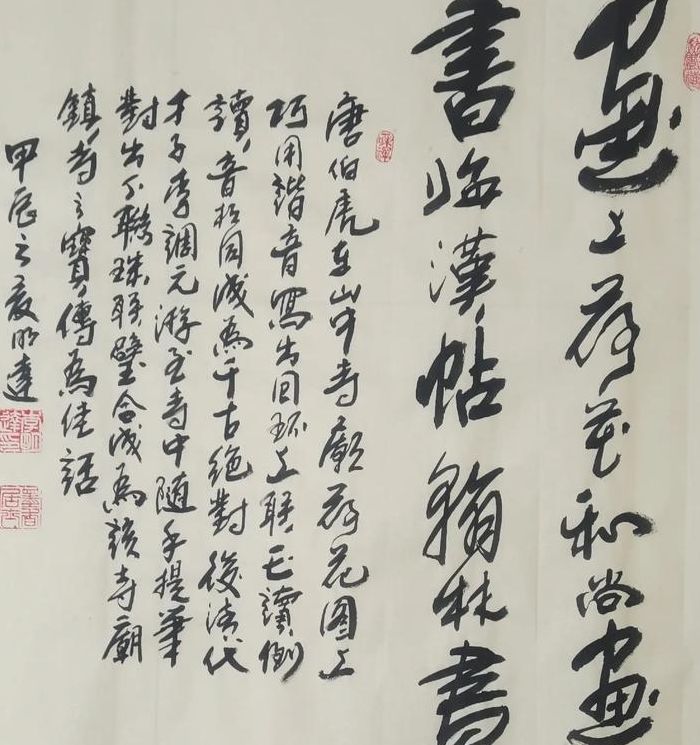 畫上荷花和尚畫
書臨漢帖翰林書
唐伯虎在山中寺廟荷花图上
巧用諧音寫出回环上联正讀倒
讀音相同成為千古绝對後清代
才子李調元游至寺中随手提筆
對出下聯珠联璧合成為該寺廟
鎮寺之寶傳為佳話
甲辰之夏明達